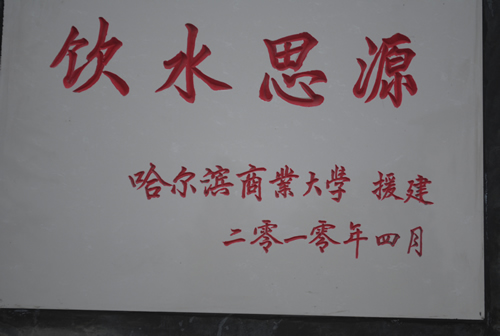 饮水思源
哈尔滨商業大學 援建
二零一零年四月